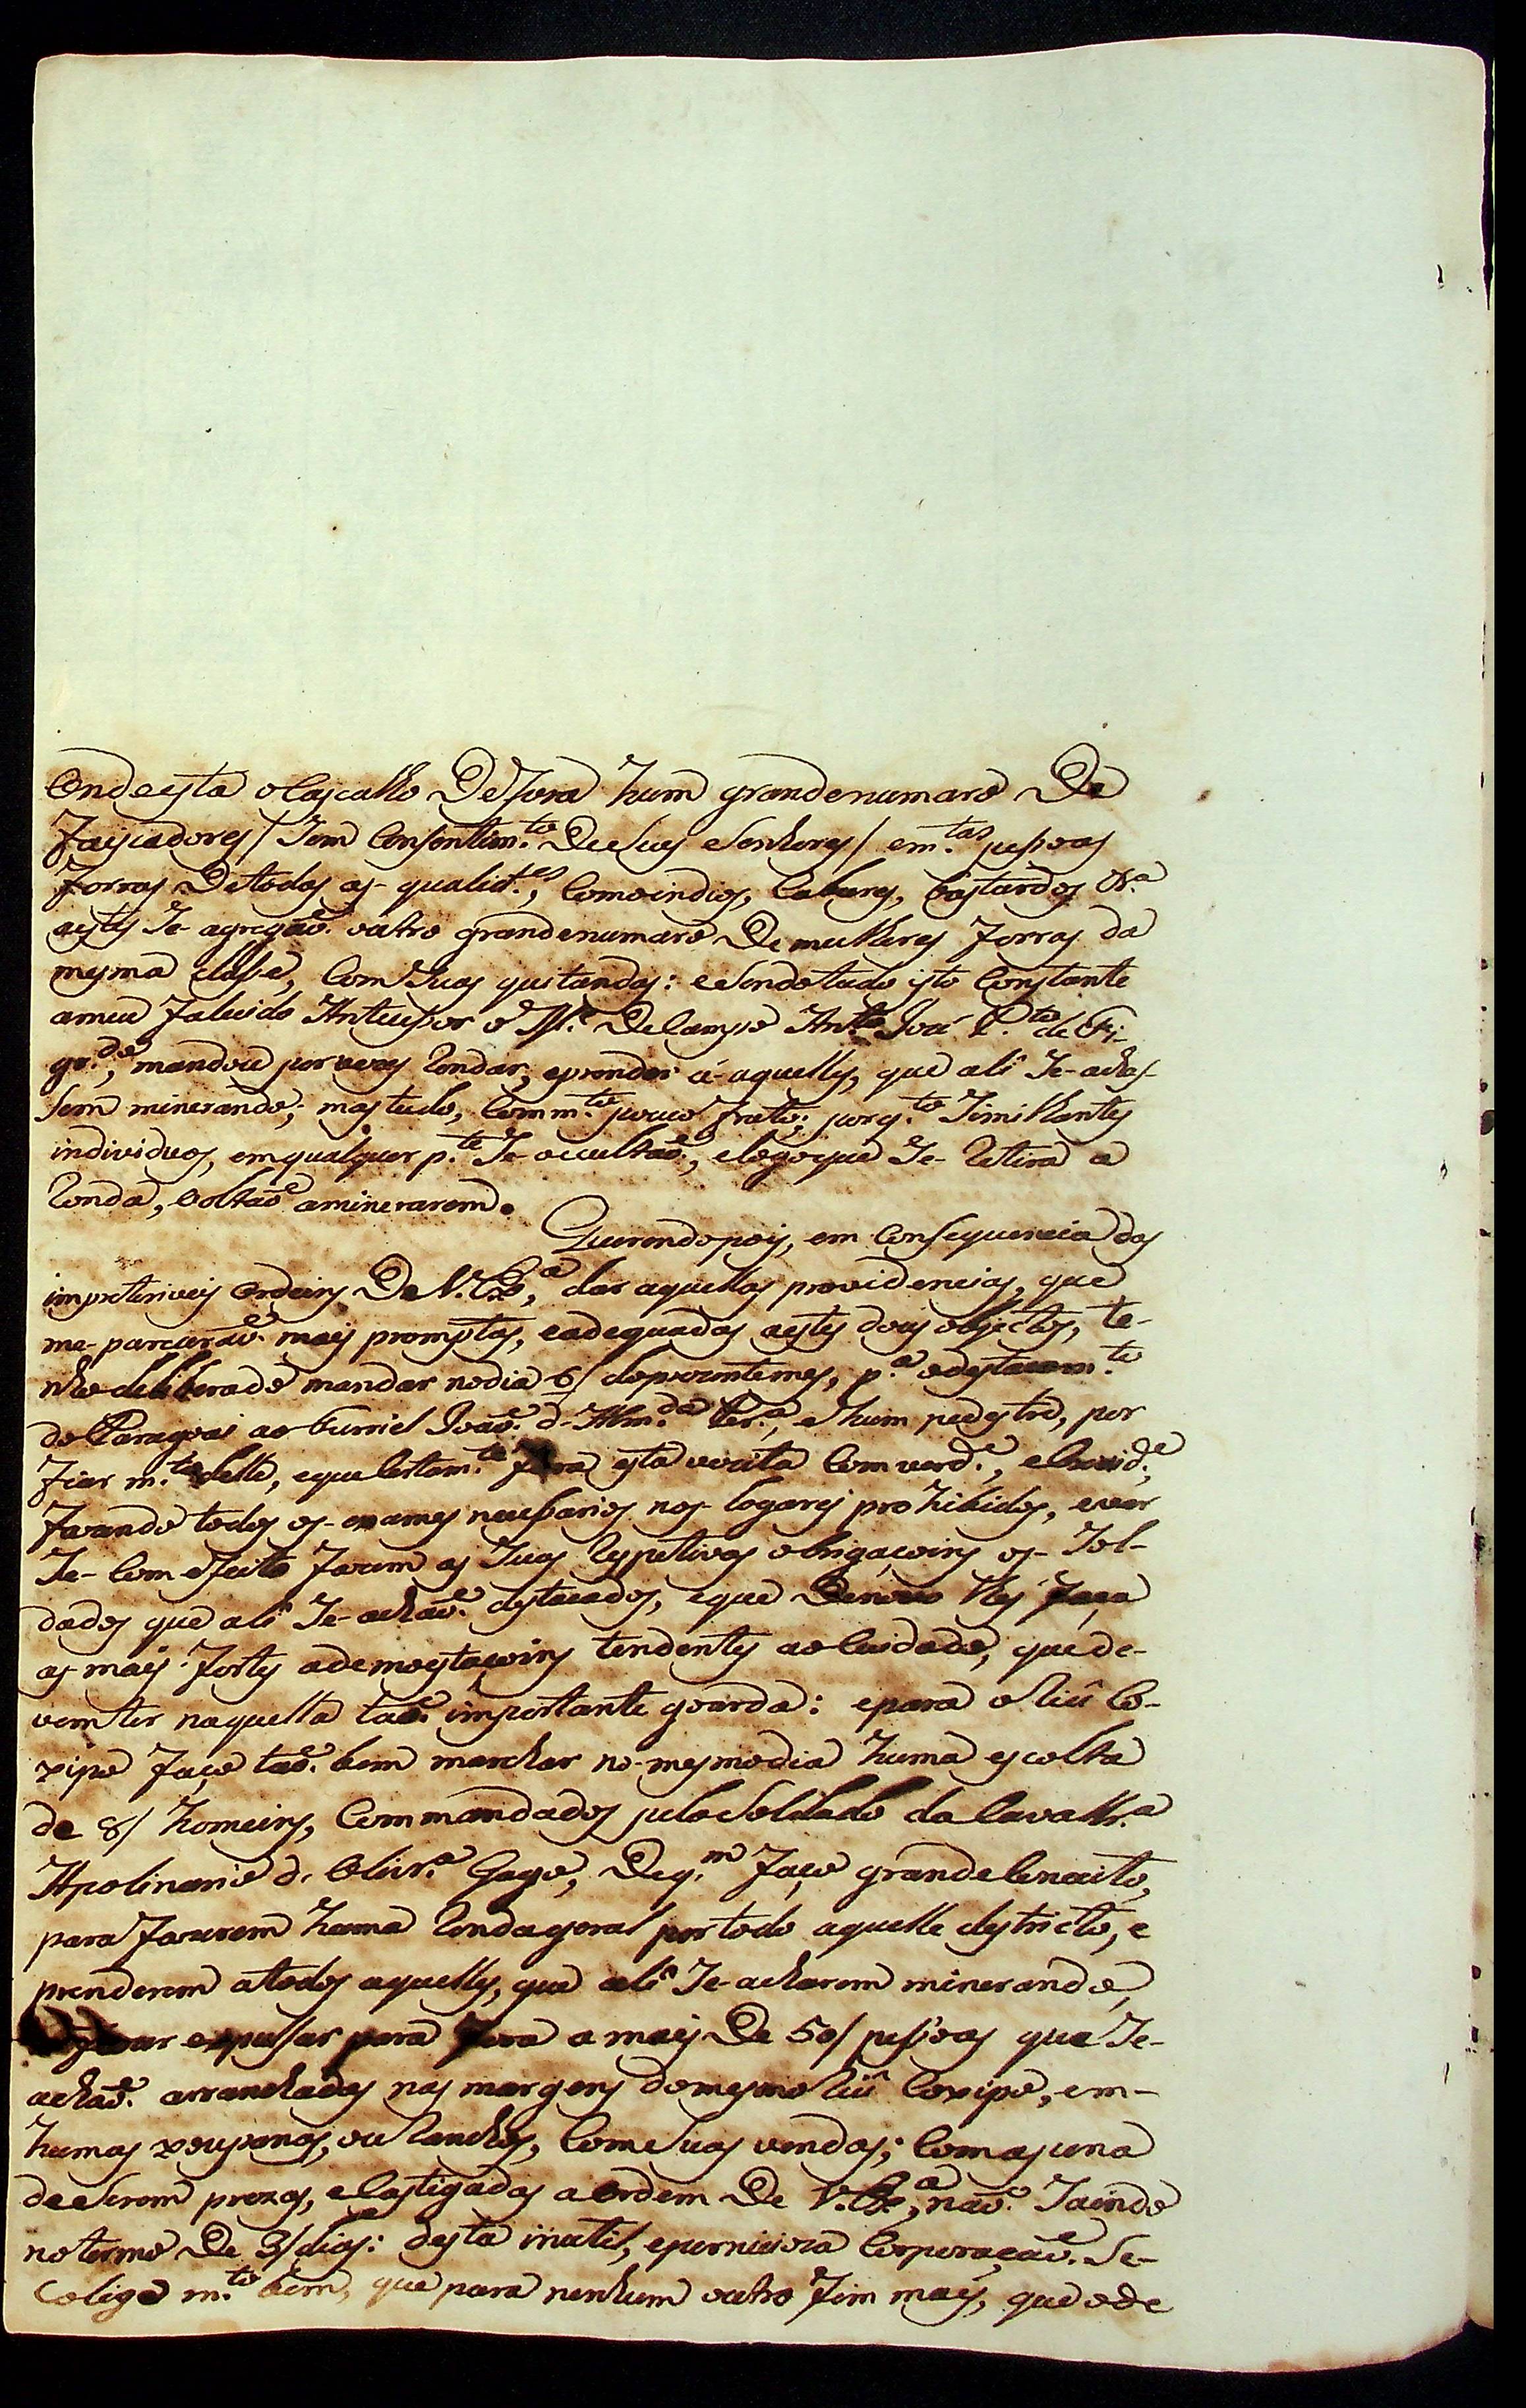 Ondeesta oCascalho DeFora hum grandenumaro De
Faiscadores/ Sem Consentim.to DeSeus eSenhores/ em.tas pessoas
Forras Detodas as-qualid.es, Comoindios, Cabures, Bastardos &.a
aestes Se-agregaõ. outro grandenumaro De mulheres Forras da
mesma classe, Com Suas quitandas: eSendotudo isto Constante
ameu Falecido Antecessor o M.e DeCampo Ant.o José P.to de Fi-
gr.do, mandou porvezes Rondar, eprender á-aquelles, que ali Se-achas-
Sem minerando; mastudo, Comm.to pouco fruto; porq.to Similhantes
individuos, emqualquer p.te Se-occultaõ, elogoque Se-Retira a
Ronda, Voltaõ aminerarem.
Querendopois, em Consequencia das
impreteriveis Ordeins De V. Ex.a, dar aquellas providencias, que
me-pareceraõ. mais promptas, eadequadas aestes dois objectos, te-
nhodeliberado mandar nodia 6/ doprezentemes, p.a odestacam.to
do Paragoai ao Furriel Joaõ. d'Alm.da Per.a, ehum pedestre, por
Fiar m.to delle, equeCertam.te Fará esta vezita Comverd.e, e
Fazendo todos os-exames necessarios nos-logares prohibidos, ever
Se-Com efeito Fazem as Suas Respetivas obrigacoins os-Sol-
dados que ali Se-achaõ. destacados, eque Denovo lhes Faça
as mais Fortes ademoestacoins tendentes aoCuidado, quede-
vemter naquella taõ. importante goarda: epara oRiu Co-
xipo Faço taõ.bem marchar no-mesmodia huma escolta
de 8/ homeins, Commandados peloSoldado daCavallr.a
Apolinario d'Olivr.a Gago, Deq.m Faço grandeConceito,
para Fazerem huma Rondageral portodo aquelle destricto, e
prenderem atodos aquelles, que ali Se-acharem minerando,
Fazer expulsar para Fora a mais De 50/ pessoas que Se-
achaõ. arranchadas nas margens domesmo Riu Coxipo, em-
humas xoupanas, ou Ranchos, ComeSuas vendas; Comapena
deeSerem prezas, eCastigadas aOrdem De V. Ex.a, naõ. Saindo
notermo De 3/dias: desta inutil, epernicioza Corporaçaõ. Se-
Colige m.to bem, que para nenhum outro Fim mais, queode